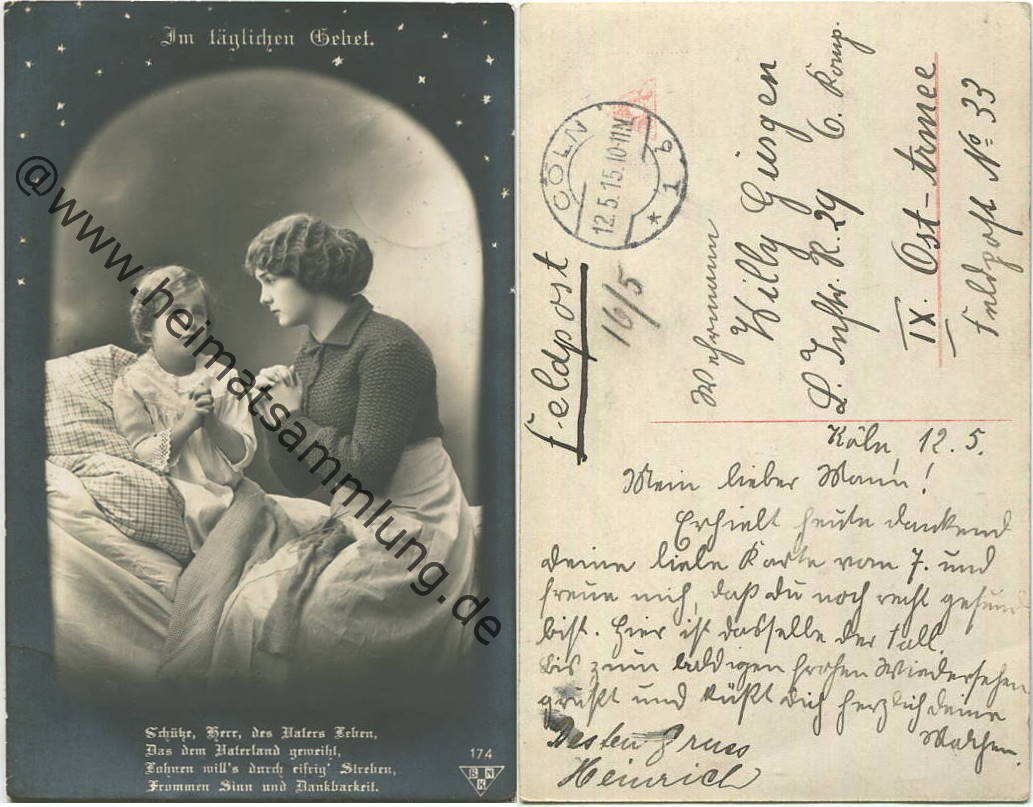 Im täglichen Gebet.
@www.heimatsammlung.de
Schütze, Herr, des Vaters Leben,
Das dem Vaterland geweiht,
Lohnen will's durch eifrig' Streben,
Frommen Sinn und Dankbarkeit.
174
BNK
Feldpost
16/5
CÖLN
12.5.15.10-11N.
* 1 b
Wehrmann
Willy Giesgen
L. Inftr. R. 29 6. Komp.
IX. Ost-Armee
Feldpost No 33
Köln, 12. 5.
Mein lieber Mann!
Erhielt heute dankend
deine liebe Karte vom 7. und
freue mich, daß du noch recht gesund
bist. Hier ist dasselbe der Fall.
Bis zum baldigen frohen Wiedersehen
grüßt und küßt dich herzlich deine
Besten Gruss
Heinrich